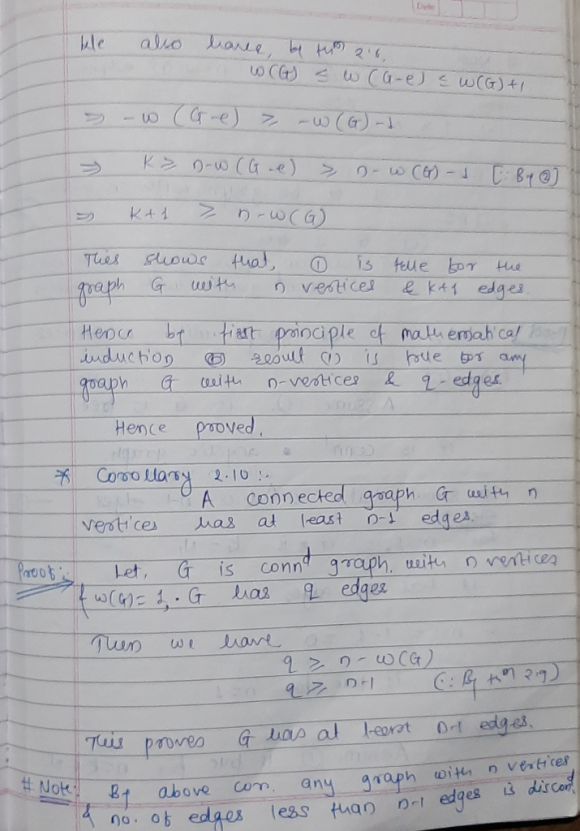 Date
We also have, by thm 2.6,
w(G) ≤ w(G-e) ≤ w(G)+1
⇒ -w(G-e) ≥ -w(G)-1
⇒ k ≥ n-w(G-e) ≥ n-w(G)-1 [∵ By ②]
⇒ k+1 ≥ n-w(G)
This shows that, ① is true for the
graph G with n vertices & k+1 edges.
Hence by first principle of mathematical
induction result (1) is true for any
graph G with n-vertices & q-edges.
Hence proved.
* Corollary 2.10:-
A connected graph G with n
vertices has at least n-1 edges.
Proof:- Let, G is connd graph. with n vertices
& w(G)=1, . G has q edges
Then we have
q ≥ n-w(G)
q ≥ n-1 (∵ By thm 2.9)
This proves G has at least n-1 edges.
# Note: By above cor. any graph with n vertices
& no. of edges less than n-1 edges is discond.